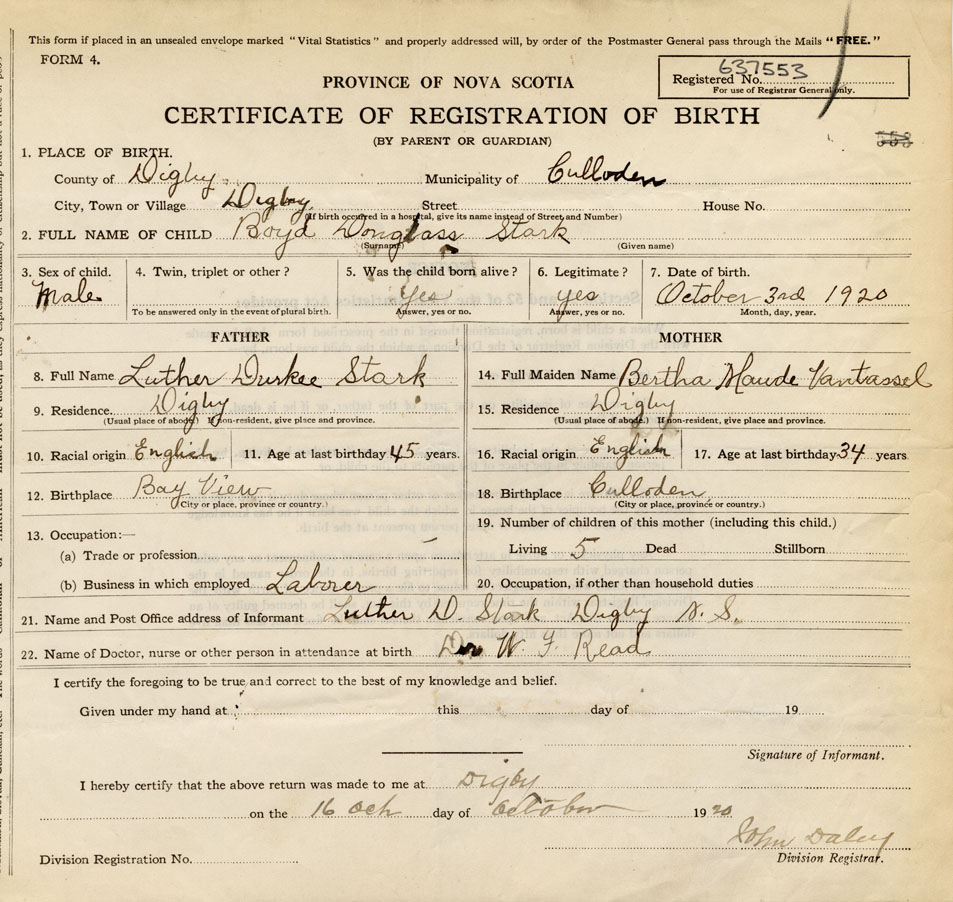 This form if placed in an unsealed envelope marked "Vital Statistics" and properly addressed will, by order of the Postmaster General pass through the Mails "FREE."
FORM 4.
637553
Registered No.
For use of Registrar General only.
PROVINCE OF NOVA SCOTIA
CERTIFICATE OF REGISTRATION OF BIRTH
(BY PARENT OR GUARDIAN)
1. PLACE OF BIRTH.
County of Digby Municipality of Culloden
City, Town or Village Digby Street House No.
(If birth occurred in a hospital, give its name instead of Street and Number)
2. FULL NAME OF CHILD Boyd Douglass Stark
(Surname) (Given name)
3. Sex of child. 4. Twin, triplet or other? 5. Was the child born alive? 6. Legitimate? 7. Date of birth.
Male Yes Yes October 3rd 1920
To be answered only in the event of plural birth. Answer, yes or no. Answer, yes or no. Month, day, year.
FATHER MOTHER
8. Full Name Luther Durkee Stark 14. Full Maiden Name Bertha Maude Vantassel
9. Residence. Digby 15. Residence Digby
(Usual place of abode.) If non-resident, give place and province. (Usual place of abode.) If non-resident, give place and province.
10. Racial origin English 11. Age at last birthday 45 years. 16. Racial origin English 17. Age at last birthday 34 years
12. Birthplace Bay View 18. Birthplace Culloden
(City or place, province or country.) (City or place, province or country.)
13. Occupation:— 19. Number of children of this mother (including this child.)
(a) Trade or profession Living 5 Dead Stillborn
(b) Business in which employed Laborer 20. Occupation, if other than household duties
21. Name and Post Office address of Informant Luther D. Stark Digby N. S.
22. Name of Doctor, nurse or other person in attendance at birth Dr W. F. Read
I certify the foregoing to be true and correct to the best of my knowledge and belief.
Given under my hand at this day of 19
Signature of Informant.
I hereby certify that the above return was made to me at Digby
on the 16 Oct day of October 1920
John Daley
Division Registration No. Division Registrar.